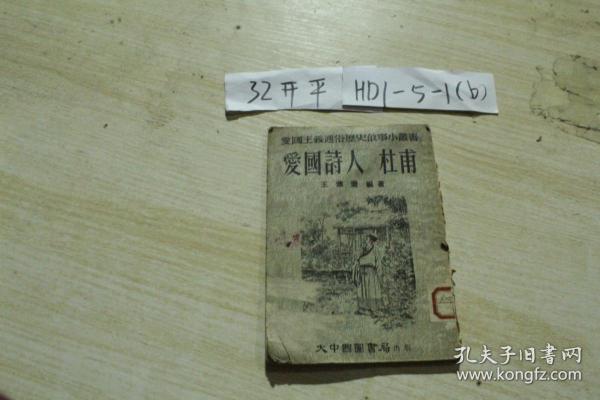 32开平 HD1-5-1(b)
愛國主義通俗歷史故事小叢書
愛國詩人 杜甫
王 編著
大中國圖書局出版
孔夫子旧书网
www.kongfz.com